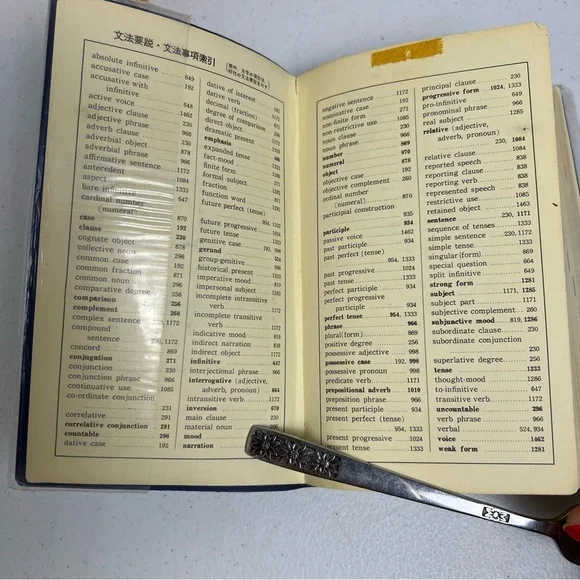 文法要説・文法事項索引
absolute infinitive 649
accusative case 192
accusative with
infinitive
active voice 1462
adjective clause 230
adjective phrase 966
adverb clause 230
adverbial object 230
adverbial phrase 878
affirmative sentence 966
antecedent 1172
aspect 1084
bare infinitive 1333
cardinal number 647
(numeral) 870
case 192
clause 230
cognate object 878
collective noun 296
common case 192
common fraction 871
common noun 296
comparative degree 256
comparison 256
complement 260
complex sentence 230, 1172
compound
sentence 230, 1172
concord 869
conjugation 271
conjunction 230
conjunction phrase 966
continuative use 1085
co-ordinate conjunction
231
correlative 291
correlative conjunction 291
countable 296
dative case 192
dative of interest
dative verb
decimal (fraction)
degree of comparison
direct object
dramatic present
emphasis
expanded tense
fact-mood
finite form
formal subject
fraction
function word
future perfect (tense)
future progressive 954
future tense
genitive case 192, 998
gerund
group-genitive
historical present
imperative mood
impersonal subject
incomplete intransitive
verb
incomplete transitive
verb
indicative mood
indirect narration 838
indirect object
infinitive 647
interjectional phrase 966
interrogative (adjective,
adverb, pronoun) 664
intransitive verb 1172
inversion 670
main clause 230
material noun 296
mood
narration
negative sentence 1172
nominative case 192
non-finite form 271
non-restrictive use 1085
noun clause 230
noun phrase 966
number 869
numeral 870
object 878
objective case 192
objective complement 260
ordinal number
(numeral) 870
participial construction
935
participle 934
passive voice 1462
past participle 934
past perfect (tense)
954, 1333
past progressive 1024
past tense 1333
perfect participle 934
perfect progressive
participle 934
perfect tense 954, 1333
phrase 966
plural(form) 869
positive degree 256
possessive adjective 998
possessive case 192, 998
possessive pronoun 998
predicate verb 1171
prepositional adverb 1010
preposition phrase 966
present participle 934
present perfect (tense)
954, 1333
present progressive 1024
present tense 1333
principal clause 230
progressive form 1024, 1333
pro-infinitive 649
pronominal phrase 966
real subject 1285
relative (adjective,
adverb, pronoun)
230, 1084
relative clause 1084
reported speech 838
reporting clause 838
reporting verb 838
represented speech 838
restrictive use 1085
retained object 1463
sentence 230, 1171
sequence of tenses 1333
simple sentence 230, 1172
simple tense 1333
singular (form) 869
special question 664
split infinitive 649
strong form 1281
subject 1171, 1285
subject part 1171
subjective complement 260
subjunctive mood 819, 1286
subordinate clause 230
subordinate conjunction
230
superlative degree 256
tense 1333
thought-mood 1286
to-infinitive 647
transitive verb 1172
uncountable 296
verb phrase 966
verbal 524, 934
voice 1462
weak form 1281